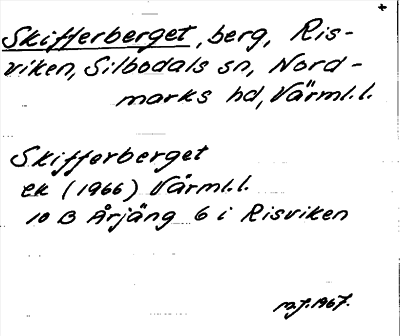 Skifferberget, berg, Ris-
viken, Silbodals sn, Nord-
marks hd, Värml.l.
Skifferberget
ek (1966) Värml.l.
10 B Årjäng 6 i Risviken
1967.